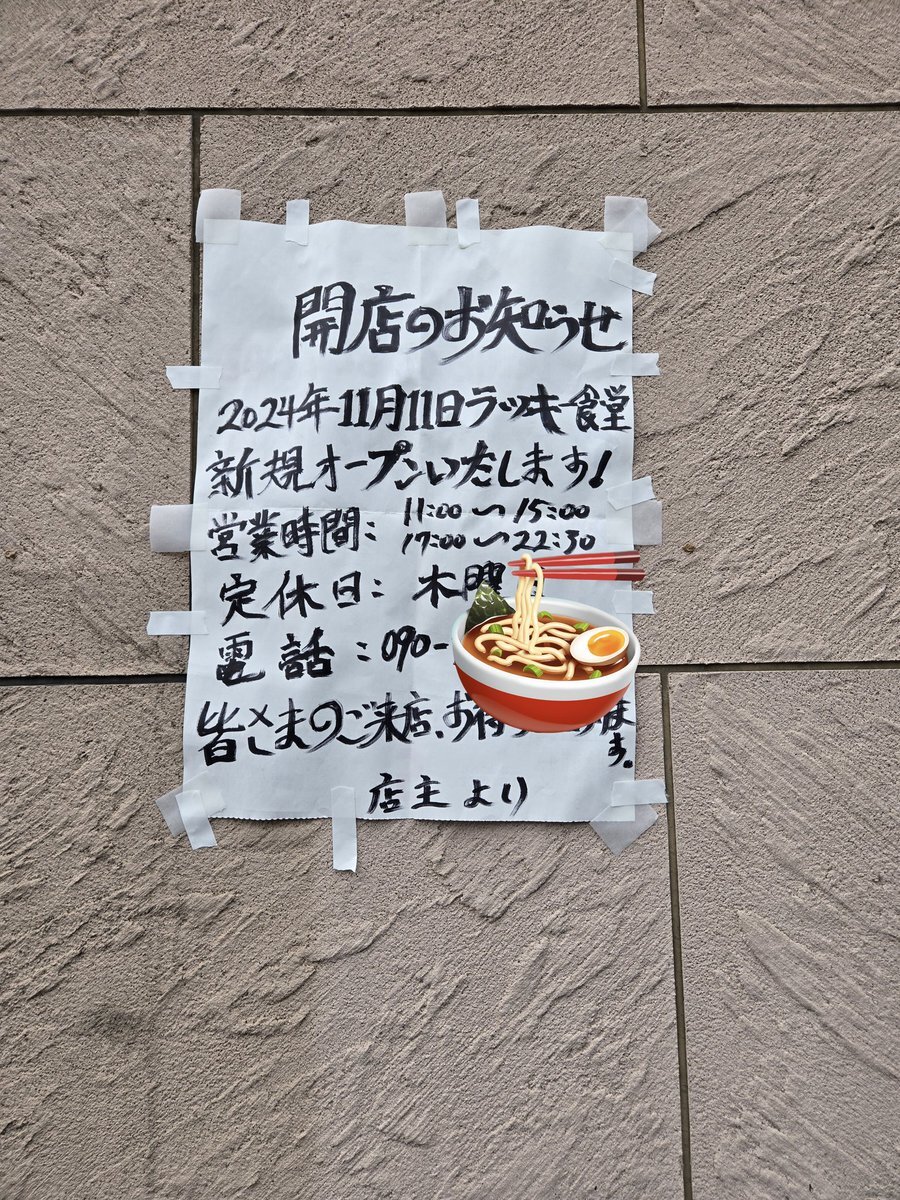 開店のお知らせ
2024年11月11日ラッキー食堂
新規オープンいたします!
営業時間: 11:00〜15:00
17:00〜22:30
定休日: 木曜
電話:090-
皆さまのご来店、お待
ます。
店主より